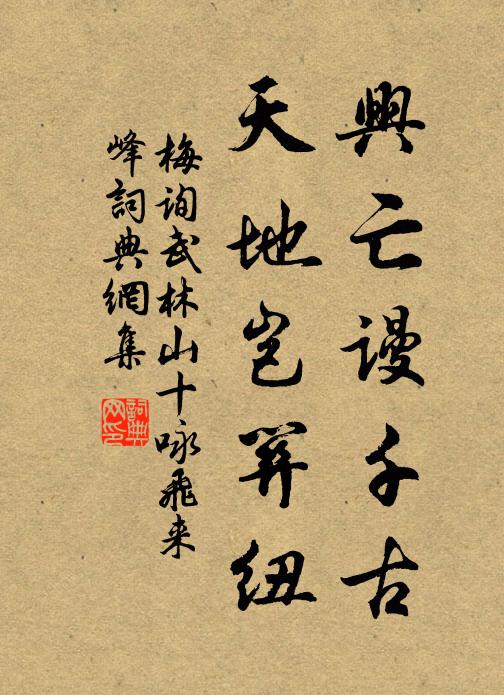 興亡謾千古
天地豈筭紐
梅詢武林山十咏飛来
峰詞典網集
詞典
网印